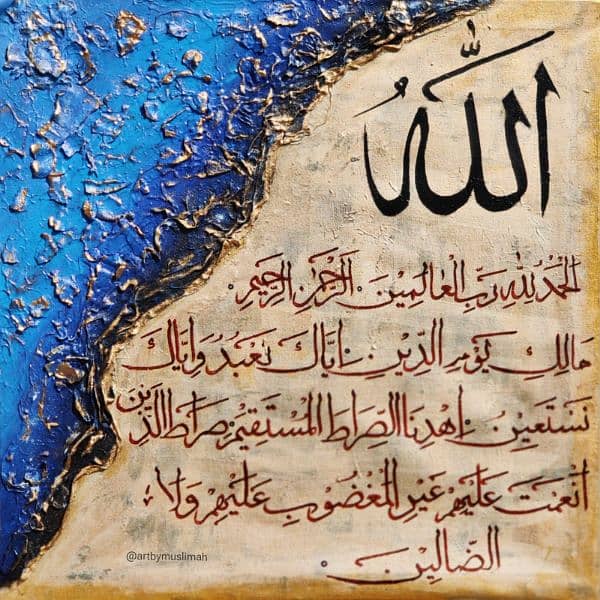 اللّٰهُ
الحَمْدُ لِلّٰهِ رَبِّ الْعَالَمِينَ. الرَّحْمٰنِ الرَّحِيْمِ.
مَالِكِ يَوْمِ الدِّيْنِ. اِيَّاكَ نَعْبُدُ وَاِيَّاكَ
نَسْتَعِيْنُ. اِهْدِنَا الصِّرَاطَ الْمُسْتَقِيْمَ. صِرَاطَ الَّذِيْنَ
اَنْعَمْتَ عَلَيْهِمْ غَيْرِ الْمَغْضُوْبِ عَلَيْهِمْ وَلَا
الضَّالِّيْنَ.
@artbymuslimah